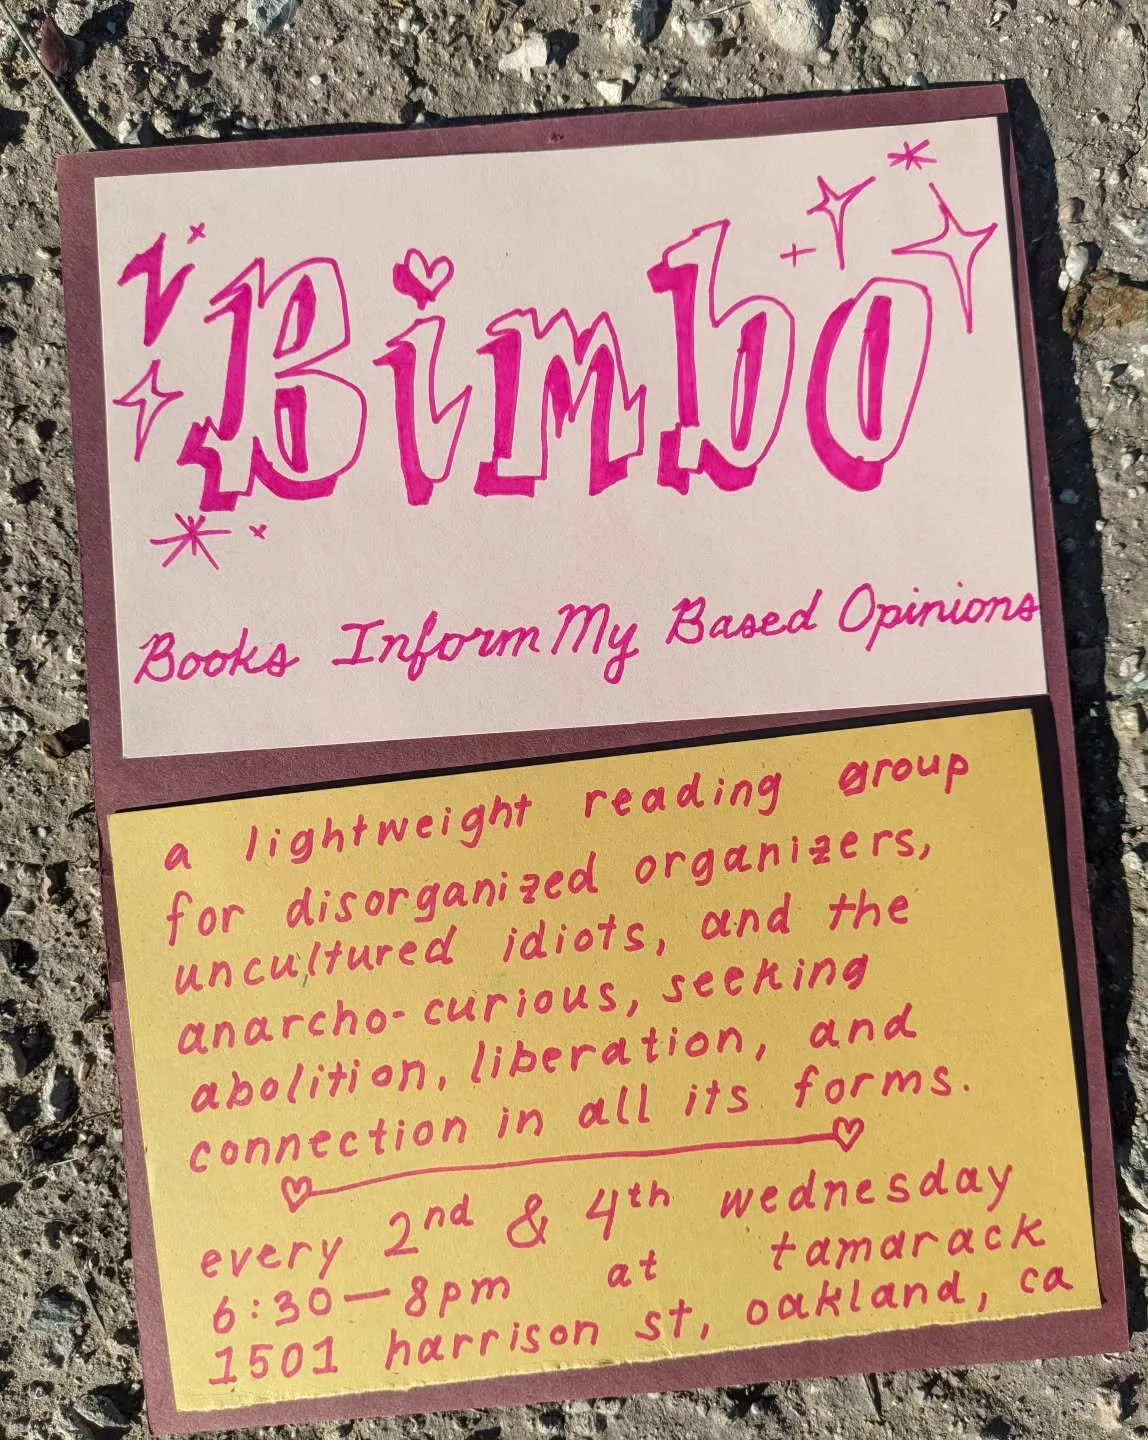 Bimbo
Books Inform My Based Opinions
a lightweight reading group
for disorganized organizers,
uncultured idiots, and the
anarcho-curious, seeking
abolition, liberation, and
connection in all its forms.
every 2nd & 4th wednesday
6:30—8pm at tamarack
1501 harrison st, oakland, ca